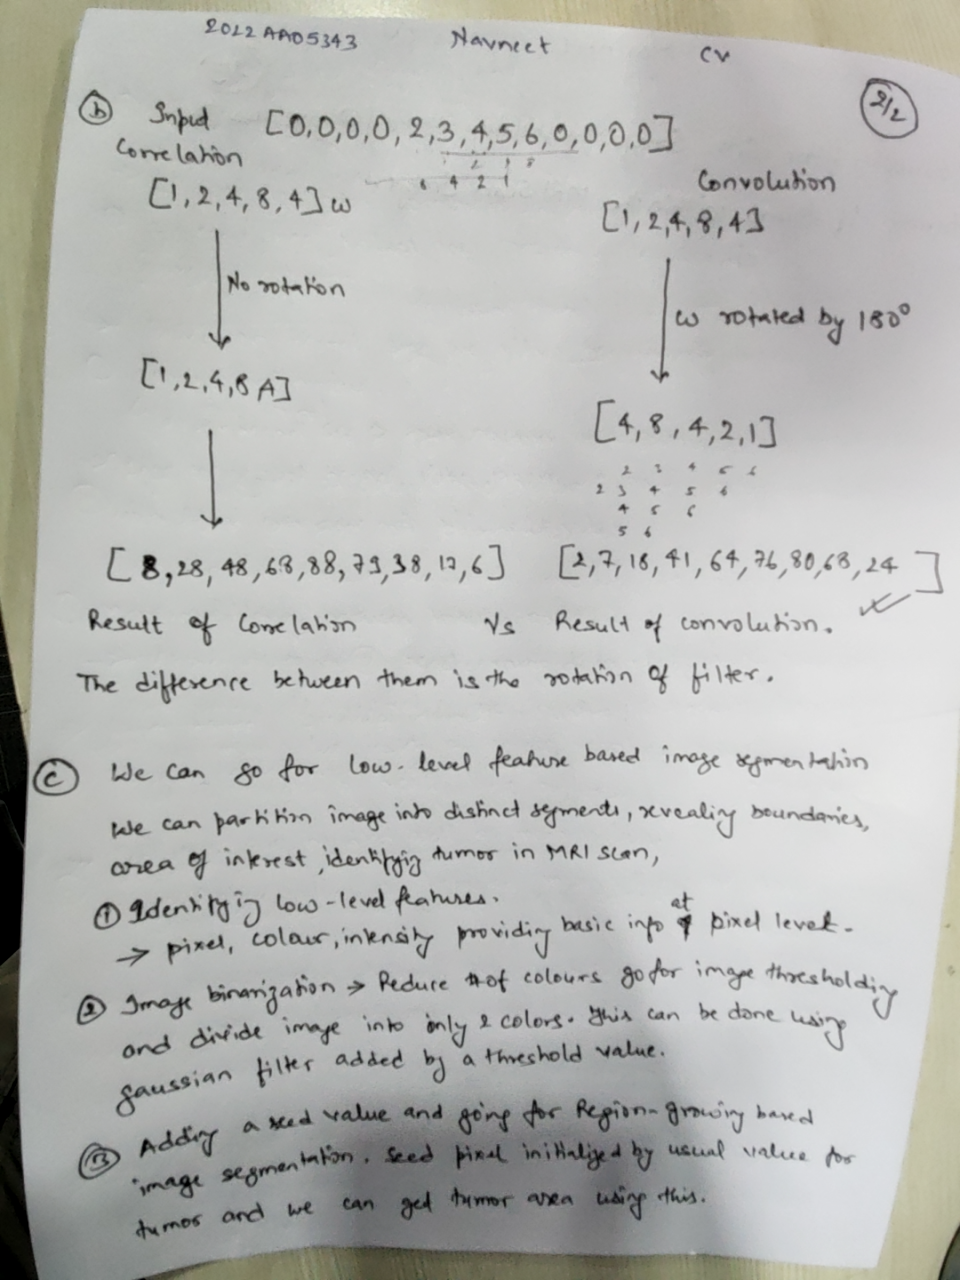 2022AA05343 Navneet CV
2/2
(b) Input [0,0,0,0,2,3,4,5,6,0,0,0,0]
Correlation
1 2 4 8
8 4 2 1
[1,2,4,8,4] w
Convolution
[1,2,4,8,4]
No rotation
w rotated by 180°
[1,2,4,8,4]
[4,8,4,2,1]
2 3 4 5 6
2 3 4 5 6
4 5 6
5 6
[8,28,48,68,88,79,38,17,6] [2,7,18,41,64,76,80,68,24]
Result of Correlation Vs Result of convolution.
The difference between them is the rotation of filter.
(c) We can go for low-level feature based image segmentation
We can partition image into distinct segments, revealing boundaries,
area of interest, identifying tumor in MRI scan,
(1) Identifying low-level features.
→ pixel, colour, intensity providing basic info at pixel level.
(2) Image binarization → Reduce # of colours go for image thresholding
and divide image into only 2 colors. This can be done using
gaussian filter added by a threshold value.
(3) Adding a seed value and going for Region-growing based
image segmentation. Seed pixel initialized by usual value for
tumor and we can get tumor area using this.